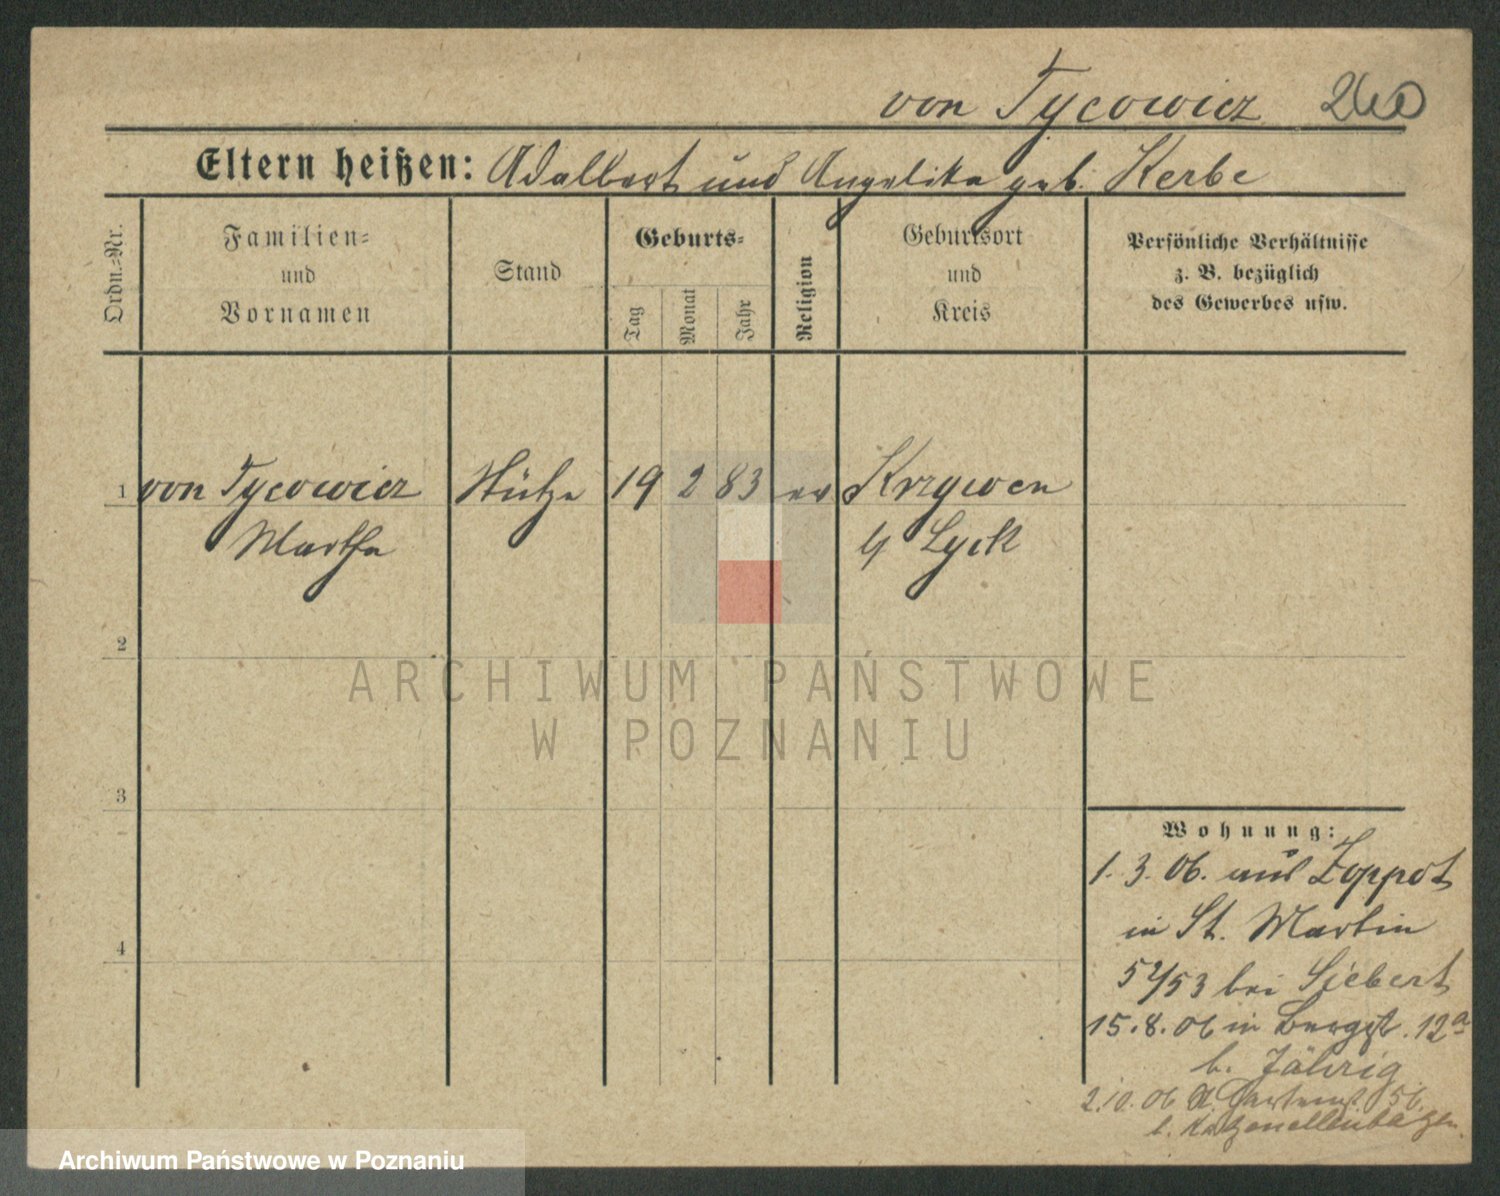 von Tycowicz 260
Eltern heißen: Adalbert und Angelika geb. Kerbe
Ordn.-Nr.
Familien-
und
Vornamen
Stand
Geburts-
Tag
Monat
Jahr
Religion
Geburtsort
und
Kreis
Persönliche Verhältnisse
z. B. bezüglich
des Gewerbes usw.
1 von Tycowicz Stütze 19 2 83 ev Krzywen
Martha Lyck
2
3
4
Wohnung:
1. 3. 06. aus Zoppot
in St. Martin
52/53 bei Siebert
15. 8. 06 in Bergst. 12a
b. Jährig
2. 10. 06 Gartenst. 56.
b.
ARCHIWUM PAŃSTWOWE
W POZNANIU
Archiwum Państwowe w Poznaniu